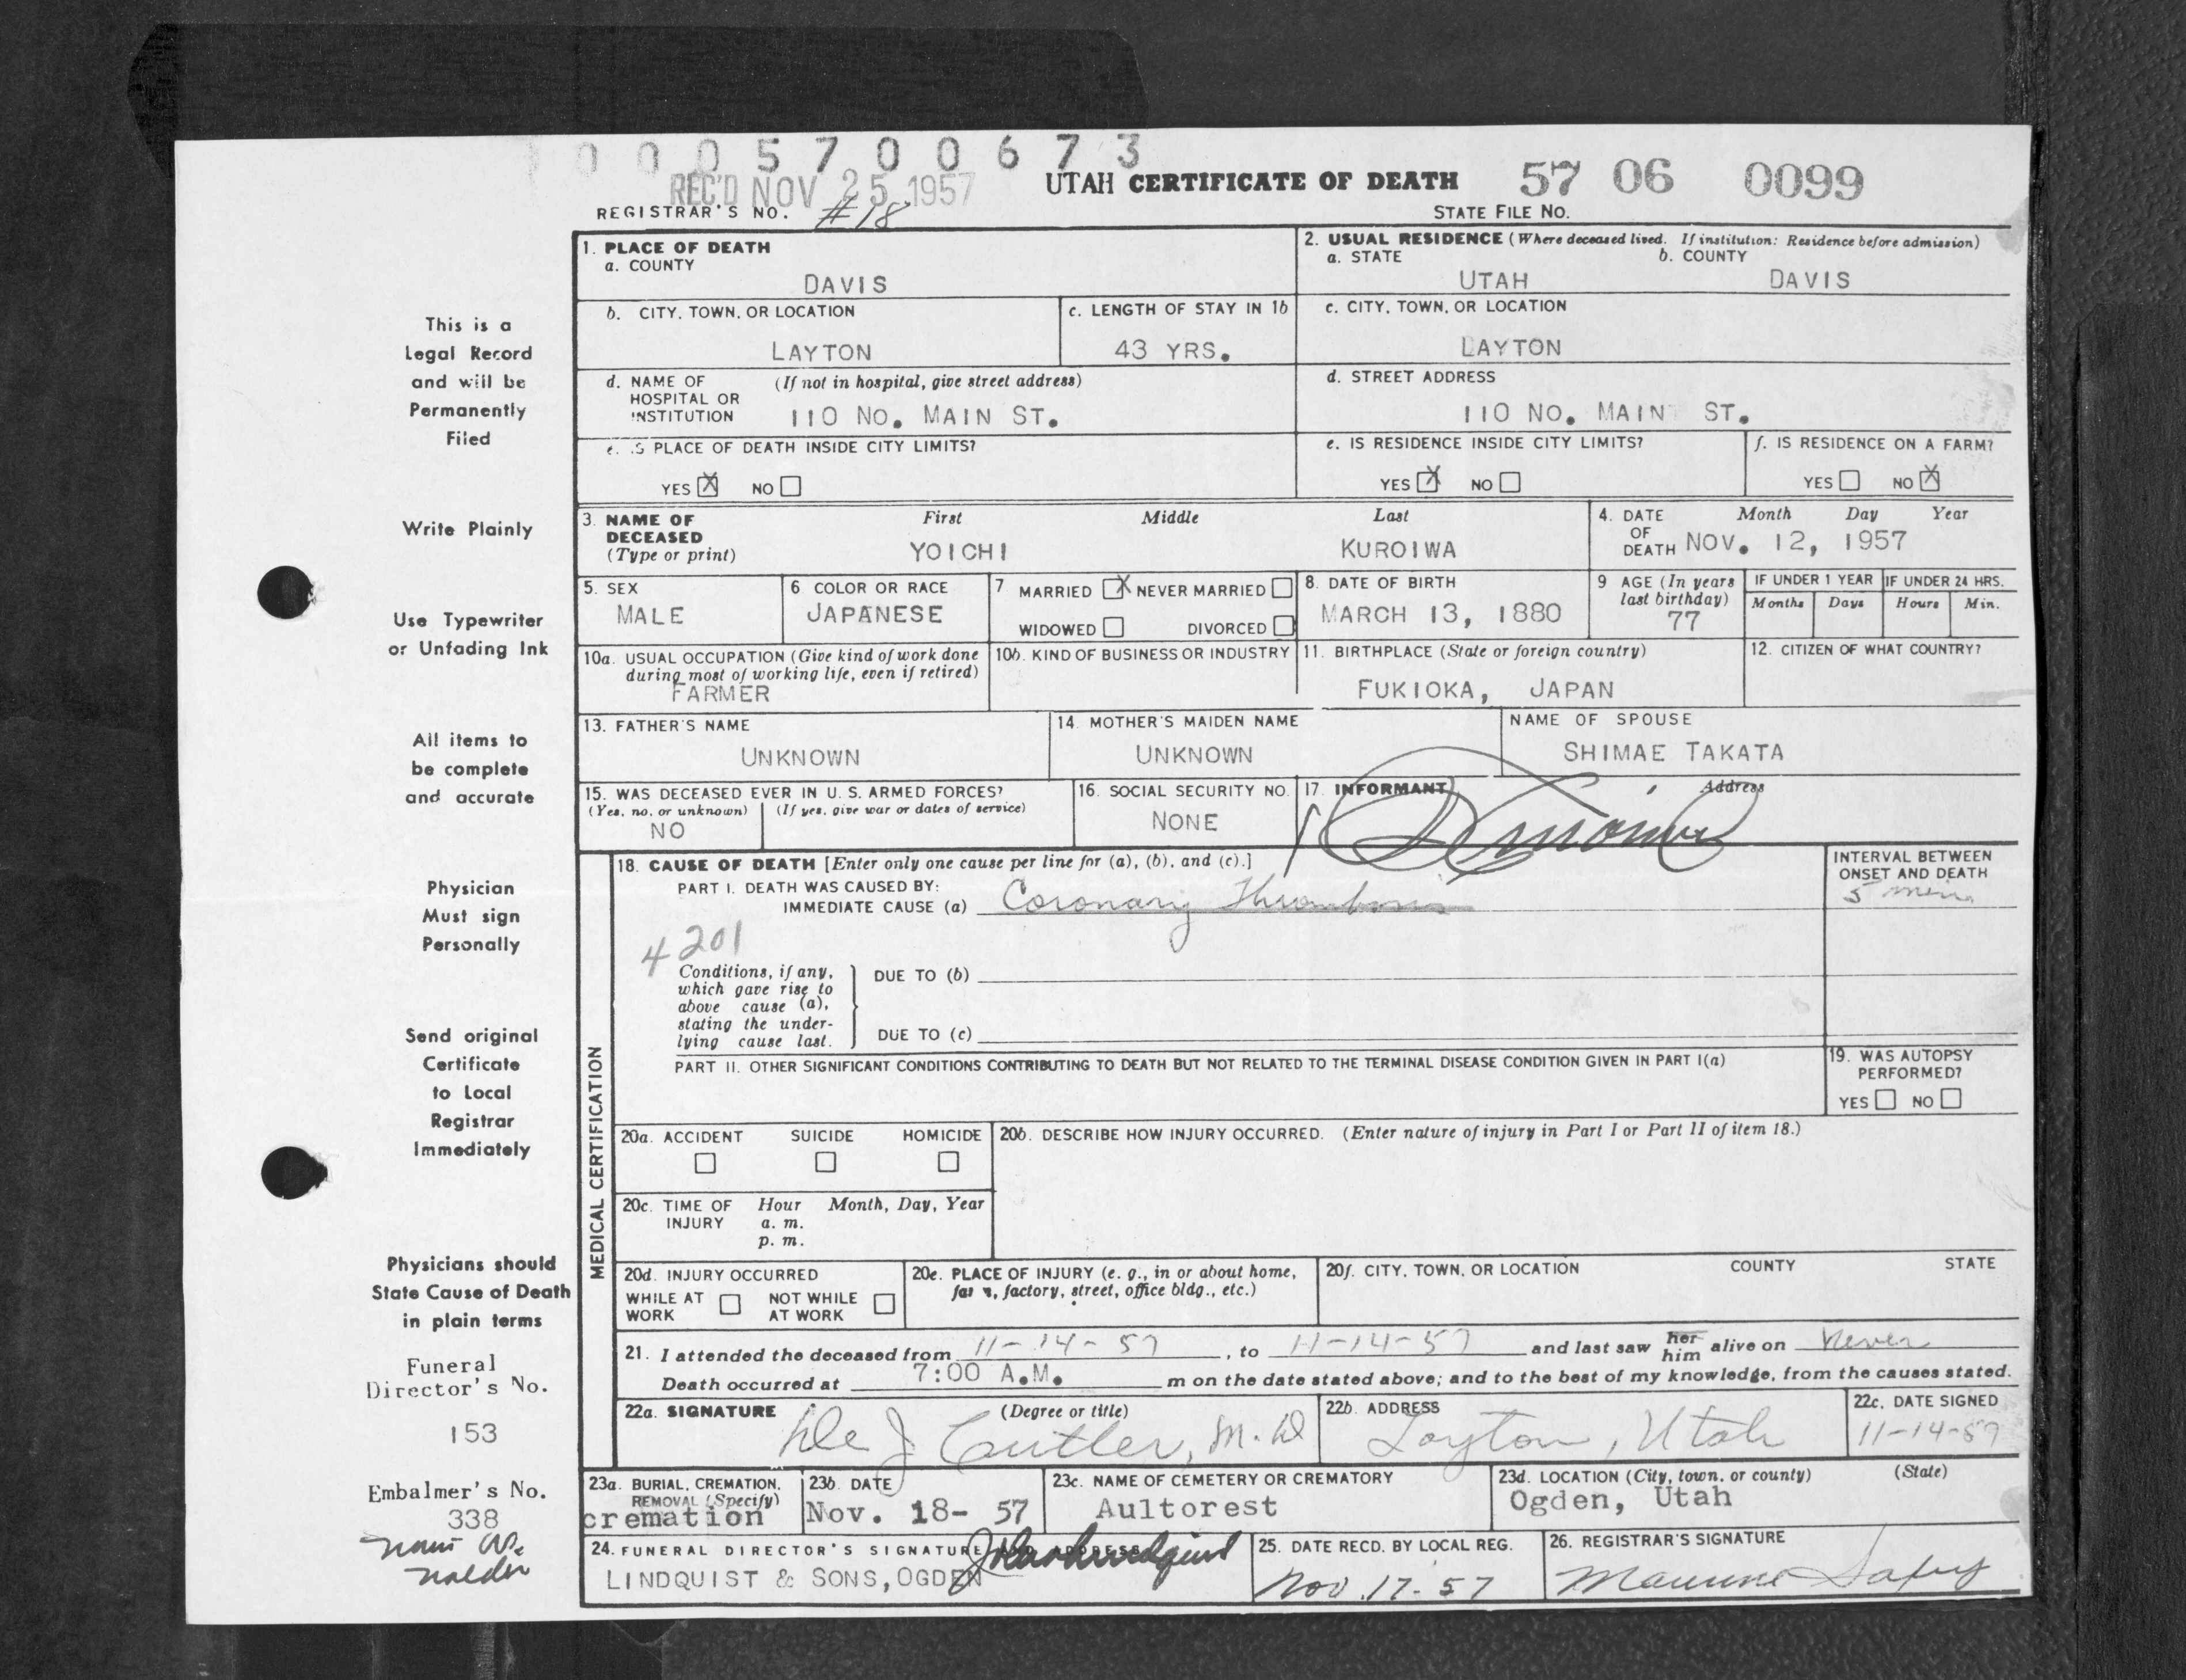 0 0 0 5 7 0 0 6 7 3
REC'D NOV 25 1957
UTAH CERTIFICATE OF DEATH 57 06 0099
REGISTRAR'S NO. #18 STATE FILE NO.
1. PLACE OF DEATH
a. COUNTY
DAVIS
2. USUAL RESIDENCE (Where deceased lived. If institution: Residence before admission)
a. STATE b. COUNTY
UTAH DAVIS
b. CITY, TOWN, OR LOCATION
LAYTON
c. LENGTH OF STAY IN 1b
43 YRS.
c. CITY, TOWN, OR LOCATION
LAYTON
d. NAME OF HOSPITAL OR INSTITUTION (If not in hospital, give street address)
110 NO. MAIN ST.
d. STREET ADDRESS
110 NO. MAIN ST.
e. IS PLACE OF DEATH INSIDE CITY LIMITS?
YES X NO
e. IS RESIDENCE INSIDE CITY LIMITS?
YES X NO
f. IS RESIDENCE ON A FARM?
YES NO X
3. NAME OF DECEASED (Type or print)
First Middle Last
YOICHI KUROIWA
4. DATE OF DEATH Month Day Year
NOV. 12, 1957
5. SEX
MALE
6 COLOR OR RACE
JAPANESE
7 MARRIED X NEVER MARRIED
WIDOWED DIVORCED
8. DATE OF BIRTH
MARCH 13, 1880
9 AGE (In years last birthday)
77
IF UNDER 1 YEAR IF UNDER 24 HRS.
Months Days Hours Min.
10a. USUAL OCCUPATION (Give kind of work done during most of working life, even if retired)
FARMER
10b. KIND OF BUSINESS OR INDUSTRY
11. BIRTHPLACE (State or foreign country)
FUKIOKA, JAPAN
12. CITIZEN OF WHAT COUNTRY?
13. FATHER'S NAME
UNKNOWN
14. MOTHER'S MAIDEN NAME
UNKNOWN
NAME OF SPOUSE
SHIMAE TAKATA
15. WAS DECEASED EVER IN U. S. ARMED FORCES?
(Yes, no, or unknown) (If yes, give war or dates of service)
NO
16. SOCIAL SECURITY NO.
NONE
17. INFORMANT Address
18. CAUSE OF DEATH [Enter only one cause per line for (a), (b), and (c).]
PART I. DEATH WAS CAUSED BY:
IMMEDIATE CAUSE (a) Coronary Thrombosis
INTERVAL BETWEEN ONSET AND DEATH
5 min.
4201
Conditions, if any, which gave rise to above cause (a), stating the underlying cause last.
DUE TO (b)
DUE TO (c)
PART II. OTHER SIGNIFICANT CONDITIONS CONTRIBUTING TO DEATH BUT NOT RELATED TO THE TERMINAL DISEASE CONDITION GIVEN IN PART I(a)
19. WAS AUTOPSY PERFORMED?
YES NO
MEDICAL CERTIFICATION
20a. ACCIDENT SUICIDE HOMICIDE
20b. DESCRIBE HOW INJURY OCCURRED. (Enter nature of injury in Part I or Part II of item 18.)
20c. TIME OF INJURY Hour Month, Day, Year
a. m.
p. m.
20d. INJURY OCCURRED
WHILE AT WORK NOT WHILE AT WORK
20e. PLACE OF INJURY (e. g., in or about home, farm, factory, street, office bldg., etc.)
20f. CITY, TOWN, OR LOCATION COUNTY STATE
21. I attended the deceased from 11-14-57, to 11-14-57 and last saw her him alive on never
Death occurred at 7:00 A.M. m on the date stated above; and to the best of my knowledge, from the causes stated.
22a. SIGNATURE (Degree or title)
J Cutler, M.D
22b. ADDRESS
Layton, Utah
22c. DATE SIGNED
11-14-57
23a. BURIAL, CREMATION, REMOVAL (Specify)
cremation
23b. DATE
Nov. 18- 57
23c. NAME OF CEMETERY OR CREMATORY
Aultorest
23d. LOCATION (City, town, or county) (State)
Ogden, Utah
24. FUNERAL DIRECTOR'S SIGNATURE AND ADDRESS
LINDQUIST & SONS, OGDEN
25. DATE RECD. BY LOCAL REG.
Nov. 17-57
26. REGISTRAR'S SIGNATURE
This is a
Legal Record
and will be
Permanently
Filed
Write Plainly
Use Typewriter
or Unfading Ink
All items to
be complete
and accurate
Physician
Must sign
Personally
Send original
Certificate
to Local
Registrar
Immediately
Physicians should
State Cause of Death
in plain terms
Funeral
Director's No.
153
Embalmer's No.
338